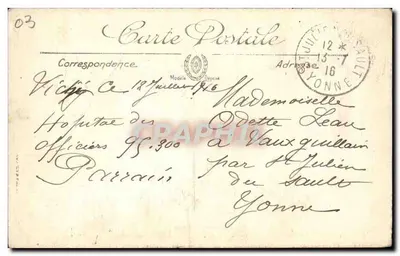 03
Carte Postale
Correspondance
Adresse
ST JULIEN DU SAULT
12 *
13 - 7
16
YONNE
Vichy Ce 12 Juillet 1916
Hopital des
officiers 95.300
Parrain
Mademoiselle
Odette Leau
à Vauxguillain
par St Julien
du Sault
Yonne